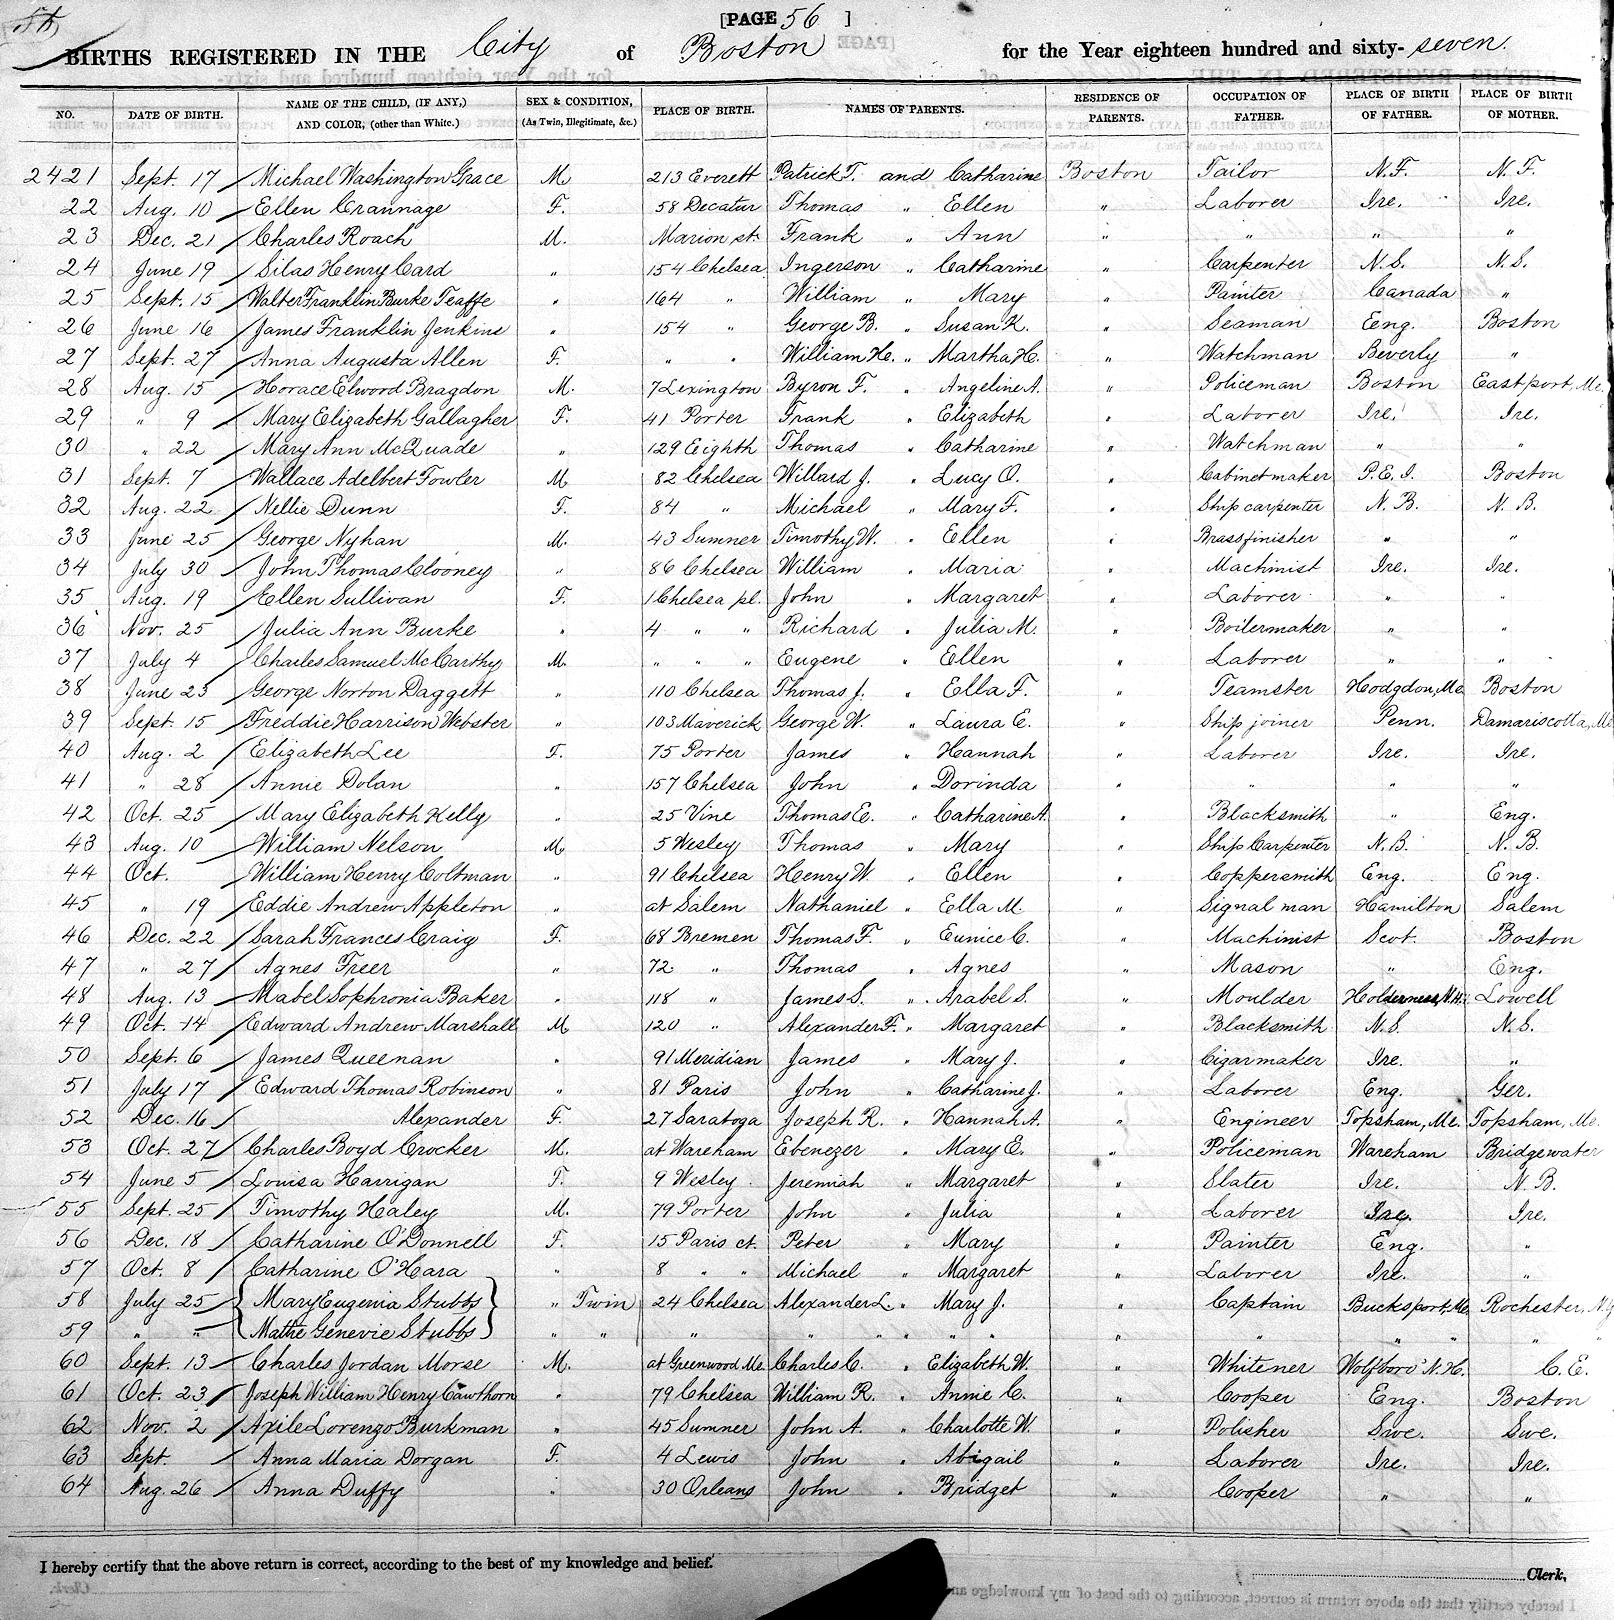 [PAGE 56 ]
BIRTHS REGISTERED IN THE City of Boston for the Year eighteen hundred and sixty-seven.
NO. DATE OF BIRTH. NAME OF THE CHILD, (IF ANY,) AND COLOR, (other than White.) SEX & CONDITION, (As Twin, Illegitimate, &c.) PLACE OF BIRTH. NAMES OF PARENTS. RESIDENCE OF PARENTS. OCCUPATION OF FATHER. PLACE OF BIRTH OF FATHER. PLACE OF BIRTH OF MOTHER.
2421 Sept. 17 Michael Washington Grace M. 213 Everett Patrick T. and Catharine Boston Tailor N.F. N.F.
22 Aug. 10 Ellen Crannage F. 58 Decatur Thomas " Ellen " Laborer Ire. Ire.
23 Dec. 21 Charles Roach M. Marion st. Frank " Ann " " " "
24 June 19 Silas Henry Card " 154 Chelsea Ingerson " Catharine " Carpenter N.S. N.S.
25 Sept. 15 Walter Franklin Burke Teaffe " 164 " William " Mary " Painter Canada "
26 June 16 James Franklin Jenkins " 154 " George B. " Susan K. " Seaman Eng. Boston
27 Sept. 27 Anna Augusta Allen F. " " William H. " Martha H. " Watchman Beverly "
28 Aug. 15 Horace Elwood Bragdon M. 7 Lexington Byron F. " Angeline A. " Policeman Boston Eastport, Me.
29 " 9 Mary Elizabeth Gallagher F. 41 Porter Frank " Elizabeth " Laborer Ire. Ire.
30 " 22 Mary Ann McQuade " 129 Eighth Thomas " Catharine " Watchman " "
31 Sept. 7 Wallace Adelbert Fowler M. 82 Chelsea Willard J. " Lucy O. " Cabinetmaker P.E.I. Boston
32 Aug. 22 Nellie Dunn F. 84 " Michael " Mary F. " Ship carpenter N.B. N.B.
33 June 25 George Nyhan M. 43 Sumner Timothy W. " Ellen " Brassfinisher " "
34 July 30 John Thomas Clooney " 86 Chelsea William " Maria " Machinist Ire. Ire.
35 Aug. 19 Ellen Sullivan F. 1 Chelsea pl. John " Margaret " Laborer " "
36 Nov. 25 Julia Ann Burke " 4 " " Richard " Julia M. " Boilermaker " "
37 July 4 Charles Samuel McCarthy M. " " " Eugene " Ellen " Laborer " "
38 June 23 George Norton Daggett " 110 Chelsea Thomas J. " Ella F. " Teamster Hodgdon, Me. Boston
39 Sept. 15 Freddie Harrison Webster " 103 Maverick George W. " Laura E. " Ship joiner Penn. Damariscotta, Me
40 Aug. 2 Elizabeth Lee F. 75 Porter James " Hannah " Laborer Ire. Ire.
41 " 28 Annie Dolan " 157 Chelsea John " Dorinda " " " "
42 Oct. 25 Mary Elizabeth Kelly " 25 Vine Thomas E. " Catharine A. " Blacksmith " Eng.
43 Aug. 10 William Nelson M. 5 Wesley Thomas " Mary " Ship Carpenter N.B. N.B.
44 Oct. William Henry Coltman " 91 Chelsea Henry W. " Ellen " Coppersmith Eng. Eng.
45 " 19 Eddie Andrew Appleton " at Salem Nathaniel " Ella M. " Signal man Hamilton Salem
46 Dec. 22 Sarah Frances Craig F. 68 Bremen Thomas F. " Eunice C. " Machinist Scot. Boston
47 " 27 Agnes Freer " 72 " Thomas " Agnes " Mason " Eng.
48 Aug. 13 Mabel Sophronia Baker " 118 " James S. " Arabel S. " Moulder Holderness, N.H. Lowell
49 Oct. 14 Edward Andrew Marshall M. 120 " Alexander F. " Margaret " Blacksmith N.S. N.S.
50 Sept. 6 James Queenan " 91 Meridian James " Mary J. " Cigarmaker Ire. "
51 July 17 Edward Thomas Robinson " 81 Paris John " Catharine J. " Laborer Eng. Ger.
52 Dec. 16 Alexander F. 27 Saratoga Joseph R. " Hannah A. " Engineer Topsham, Me. Topsham, Me.
53 Oct. 27 Charles Boyd Crocker M. at Wareham Ebenezer " Mary E. " Policeman Wareham Bridgewater
54 June 5 Louisa Harrigan F. 9 Wesley Jeremiah " Margaret " Slater Ire. N.B.
55 Sept. 25 Timothy Haley M. 79 Porter John " Julia " Laborer Ire. Ire.
56 Dec. 18 Catharine O'Donnell F. 15 Paris ct. Peter " Mary " Painter Eng. "
57 Oct. 8 Catharine O'Hara " 8 " " Michael " Margaret " Laborer Ire. "
58 July 25 Mary Eugenia Stubbs " Twin 24 Chelsea Alexander L. " Mary J. " Captain Bucksport, Me. Rochester, N.Y.
59 " " Mathe Genevie Stubbs " " " " " " " " " " " " "
60 Sept. 13 Charles Jordan Morse M. at Greenwood Me. Charles C. " Elizabeth W. " Whitener Wolfboro' N.H. C.E.
61 Oct. 23 Joseph William Henry Cawthorn " 79 Chelsea William R. " Annie C. " Cooper Eng. Boston
62 Nov. 2 Axile Lorenzo Burkman " 45 Sumner John A. " Charlotte W. " Polisher Swe. Swe.
63 Sept. Anna Maria Dorgan F. 4 Lewis John " Abigail " Laborer Ire. Ire.
64 Aug. 26 Anna Duffy " 30 Orleans John " Bridget " Cooper " "
I hereby certify that the above return is correct, according to the best of my knowledge and belief.
Clerk.